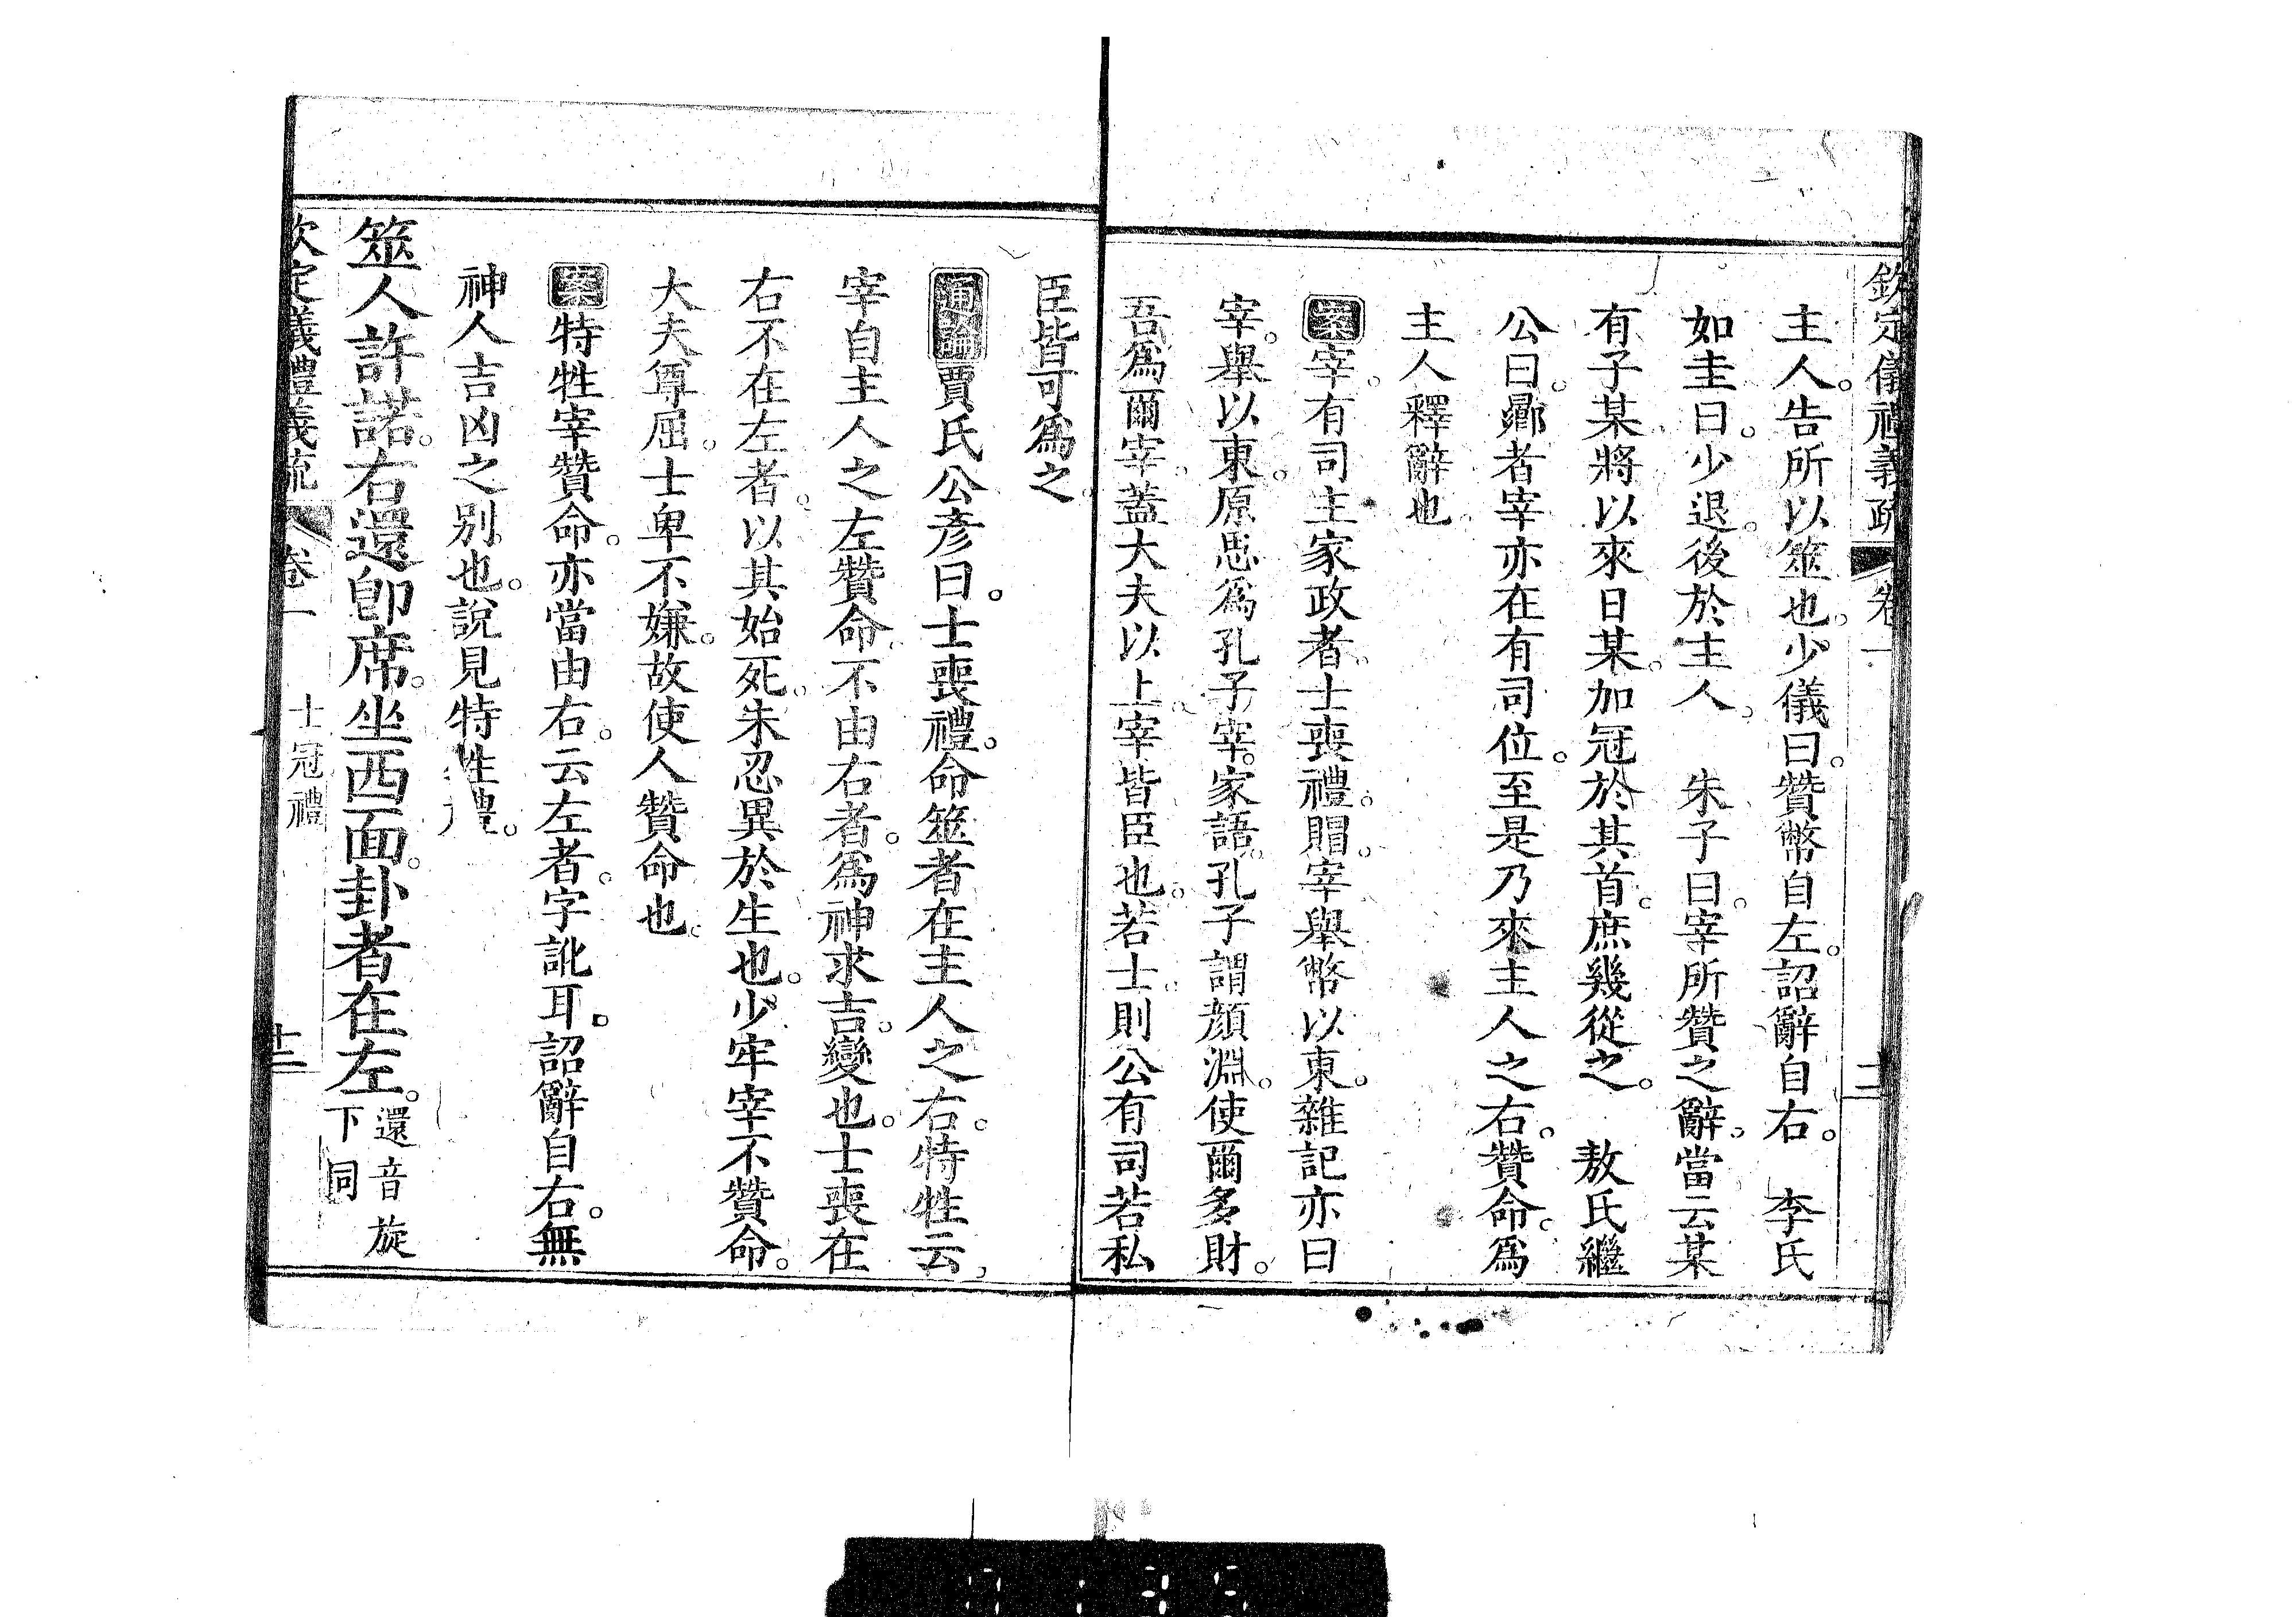 欽定儀禮義疏 卷一
主人。告所以筮也。少儀曰。贊幣自左。詔辭自右。 李氏
如圭曰。少退。後於主人。 朱子曰。宰所贊之辭。當云某
有子某。將以來日某。加冠於其首。庶幾從之。 敖氏繼
公曰。鄕者宰亦在有司位。至是乃來主人之右。贊命。爲
主人釋辭也
案宰。有司主家政者。士喪禮。賵。宰舉幣以東。雜記亦曰
宰。舉以東。原思爲孔子宰。家語。孔子謂顏淵。使爾多財。
吾爲爾宰。蓋大夫以上。宰皆臣也。若士。則公有司若私
臣皆可爲之。
通論賈氏公彥曰。士喪禮。命筮者在主人之右。特牲云。
宰自主人之左贊命。不由右者。爲神求吉。變也。士喪在
右不在左者。以其始死。未忍異於生也。少牢宰不贊命。
大夫尊屈。士卑不嫌。故使人贊命也。
案特牲宰贊命。亦當由右。云左者。字訛耳。詔辭自右。無
神人吉凶之別也。說見特牲禮。
筮人許諾。右還卽席。坐西面。卦者在左。還音旋
下同
欽定義禮義疏 卷一 士冠禮 十二